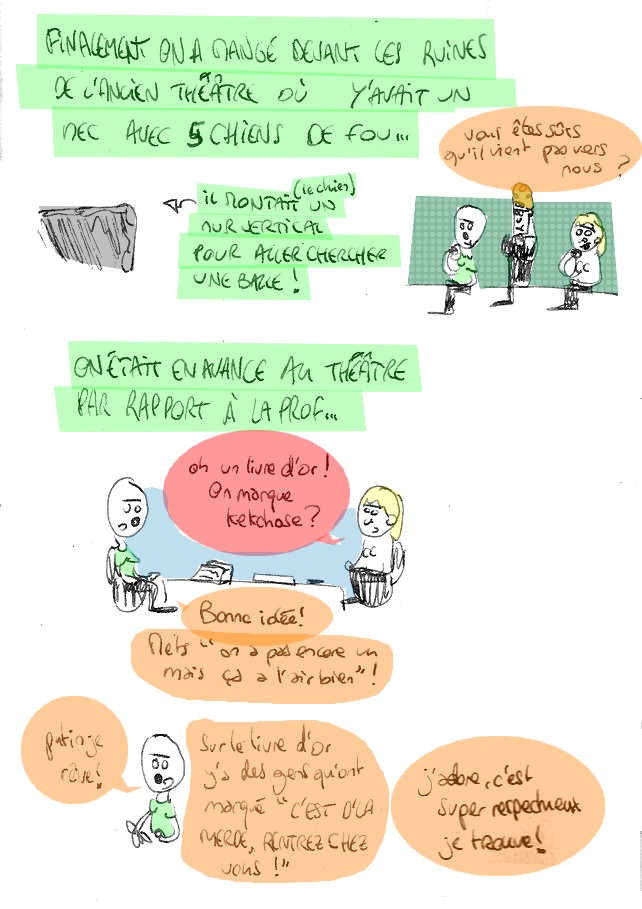 FINALEMENT ON A MANGÉ DEVANT LES RUINES
DE L'ANCIEN THÉÂTRE OÙ Y'AVAIT UN
MEC AVEC 5 CHIENS DE FOU...
vous êtes sûrs
qu'il vient pas vers
nous ?
(le chien)
IL MONTAIT UN
MUR VERTICAL
POUR ALLER CHERCHER
UNE BALLE !
ON ÉTAIT EN AVANCE AU THÉÂTRE
PAR RAPPORT À LA PROF...
oh un livre d'or !
On marque
kekchose ?
Bonne idée !
Mets "on a pas encore vu
mais ça a l'air bien" !
putain je
rêve !
Sur le livre d'or
y'a des gens qu'ont
marqué "C'EST D'LA
MERDE, RENTREZ CHEZ
VOUS !"
j'adore, c'est
super respectueux
je trouve !